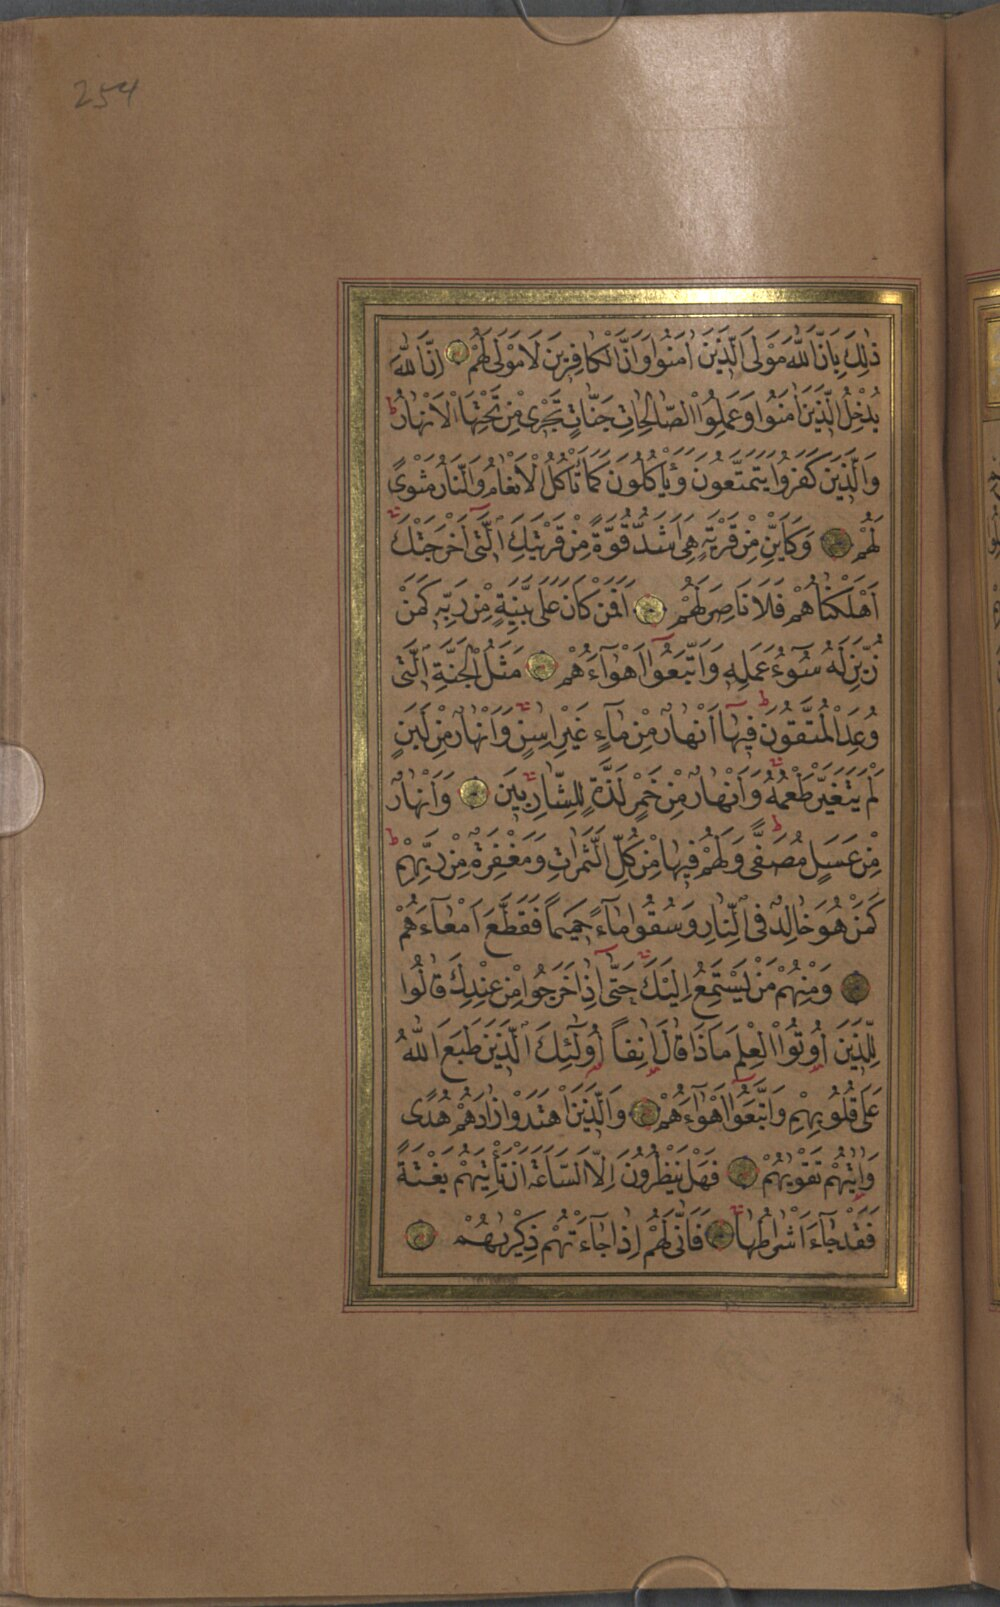 254
ذٰلِكَ بِاَنَّ اللّٰهَ مَوْلَى الَّذِينَ اٰمَنُوا وَاَنَّ الْكَافِرِينَ لَا مَوْلٰى لَهُمْ اِنَّ اللّٰهَ
يُدْخِلُ الَّذِينَ اٰمَنُوا وَعَمِلُوا الصَّالِحَاتِ جَنَّاتٍ تَجْرِى مِنْ تَحْتِهَا الْاَنْهَارُ ط
وَالَّذِينَ كَفَرُوا يَتَمَتَّعُونَ وَيَأْكُلُونَ كَمَا تَأْكُلُ الْاَنْعَامُ وَالنَّارُ مَثْوًى
لَهُمْ وَكَاَيِّنْ مِنْ قَرْيَةٍ هِىَ اَشَدُّ قُوَّةً مِنْ قَرْيَتِكَ الَّتِى اَخْرَجَتْكَ
اَهْلَكْنَاهُمْ فَلَا نَاصِرَ لَهُمْ اَفَمَنْ كَانَ عَلٰى بَيِّنَةٍ مِنْ رَبِّهِ كَمَنْ
زُيِّنَ لَهُ سُوٓءُ عَمَلِهِ وَاتَّبَعُوا اَهْوَآءَهُمْ مَثَلُ الْجَنَّةِ الَّتِى
وُعِدَ الْمُتَّقُونَ ط فِيهَا اَنْهَارٌ مِنْ مَآءٍ غَيْرِ اٰسِنٍ وَاَنْهَارٌ مِنْ لَبَنٍ
لَمْ يَتَغَيَّرْ طَعْمُهُ وَاَنْهَارٌ مِنْ خَمْرٍ لَذَّةٍ لِلشَّارِبِينَ وَاَنْهَارٌ
مِنْ عَسَلٍ مُصَفًّى ط وَلَهُمْ فِيهَا مِنْ كُلِّ الثَّمَرَاتِ وَمَغْفِرَةٌ مِنْ رَبِّهِمْ ط
كَمَنْ هُوَ خَالِدٌ فِى النَّارِ وَسُقُوا مَآءً حَمِيمًا فَقَطَّعَ اَمْعَآءَهُمْ
وَمِنْهُمْ مَنْ يَسْتَمِعُ اِلَيْكَ حَتّٰٓى اِذَا خَرَجُوا مِنْ عِنْدِكَ قَالُوا
لِلَّذِينَ اُوتُوا الْعِلْمَ مَاذَا قَالَ اٰنِفًا اُولٰٓئِكَ الَّذِينَ طَبَعَ اللّٰهُ
عَلٰى قُلُوبِهِمْ وَاتَّبَعُوا اَهْوَآءَهُمْ وَالَّذِينَ اهْتَدَوْا زَادَهُمْ هُدًى
وَاٰتٰيهُمْ تَقْوٰيهُمْ فَهَلْ يَنْظُرُونَ اِلَّا السَّاعَةَ اَنْ تَأْتِيَهُمْ بَغْتَةً
فَقَدْ جَآءَ اَشْرَاطُهَا فَاَنّٰى لَهُمْ اِذَا جَآءَتْهُمْ ذِكْرٰيهُمْ